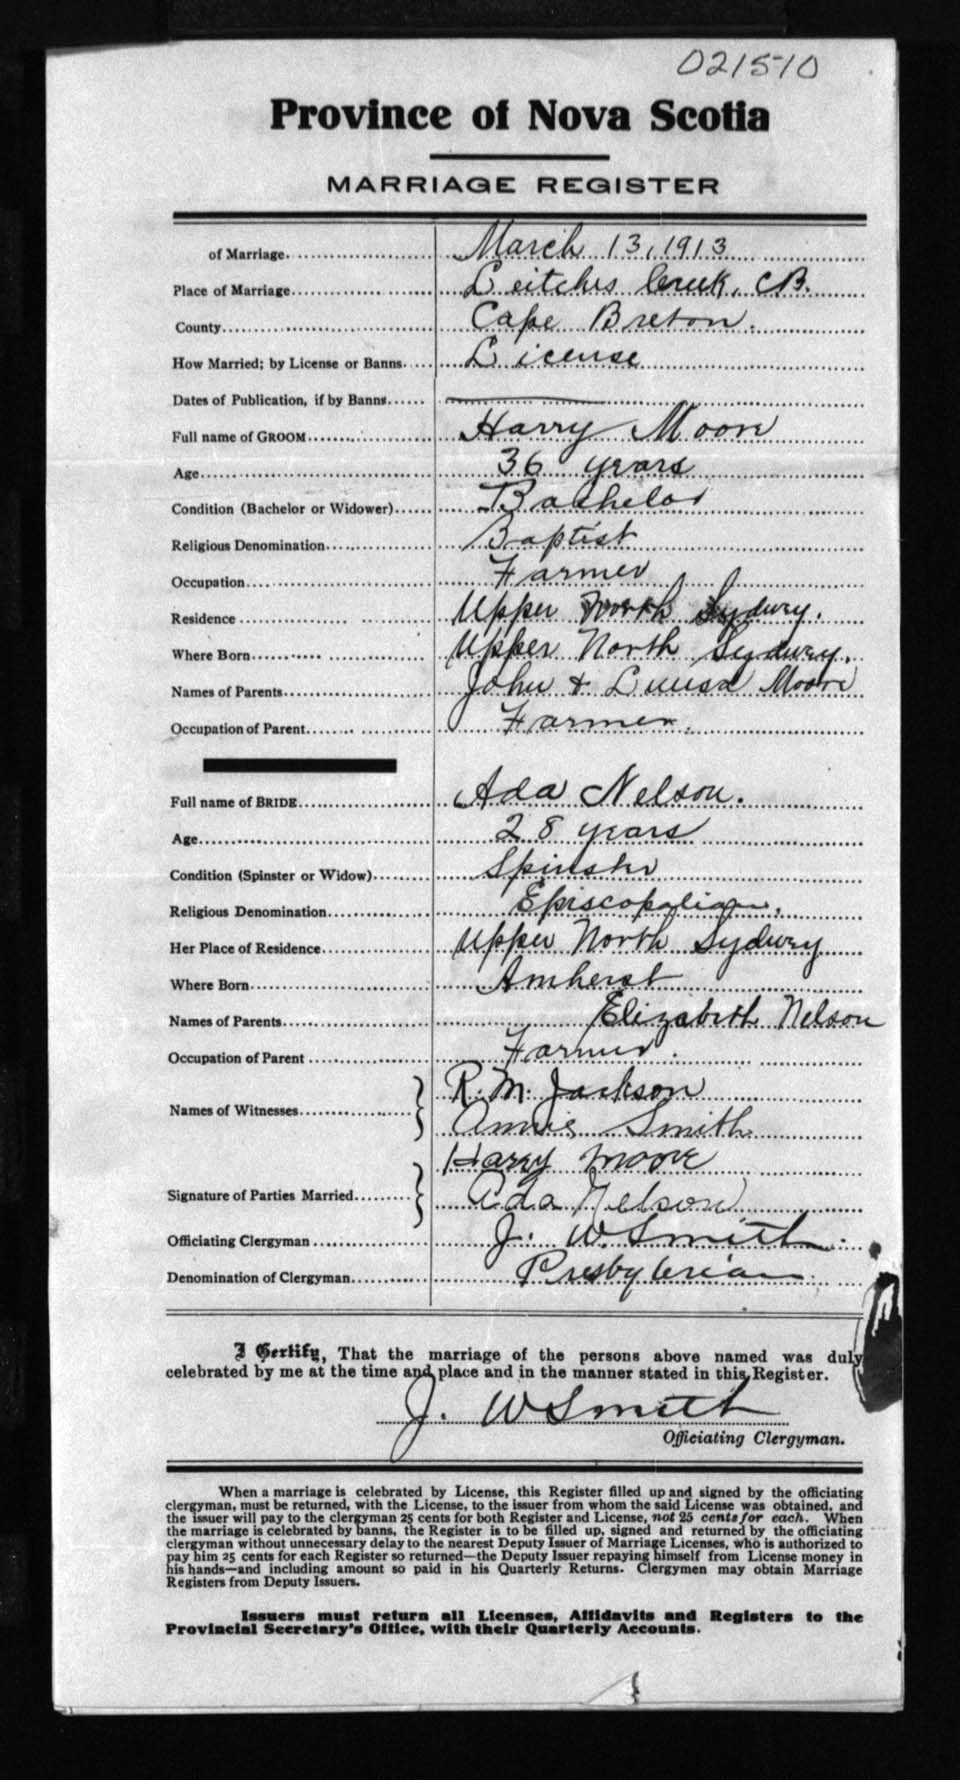 021510
Province of Nova Scotia
MARRIAGE REGISTER
of Marriage March 13, 1913
Place of Marriage Leitches Creek, CB.
County Cape Breton.
How Married; by License or Banns License
Dates of Publication, if by Banns
Full name of GROOM Harry Moore
Age 36 years
Condition (Bachelor or Widower) Bachelor
Religious Denomination Baptist
Occupation Farmer
Residence Upper North Sydney.
Where Born Upper North Sydney.
Names of Parents John & Louisa Moore
Occupation of Parent Farmer.
Full name of BRIDE Ada Nelson.
Age 28 years
Condition (Spinster or Widow) Spinster
Religious Denomination Episcopalian.
Her Place of Residence Upper North Sydney
Where Born Amherst
Names of Parents Elizabeth Nelson
Occupation of Parent Farmer.
Names of Witnesses R. M. Jackson
Annie Smith
Harry Moore
Signature of Parties Married Ada Nelson
Officiating Clergyman J. W. Smith.
Denomination of Clergyman Presbyterian
I Certify, That the marriage of the persons above named was duly
celebrated by me at the time and place and in the manner stated in this Register.
J. W Smith
Officiating Clergyman.
When a marriage is celebrated by License, this Register filled up and signed by the officiating
clergyman, must be returned, with the License, to the issuer from whom the said License was obtained, and
the issuer will pay to the clergyman 25 cents for both Register and License, not 25 cents for each. When
the marriage is celebrated by banns, the Register is to be filled up, signed and returned by the officiating
clergyman without unnecessary delay to the nearest Deputy Issuer of Marriage Licenses, who is authorized to
pay him 25 cents for each Register so returned—the Deputy Issuer repaying himself from License money in
his hands—and including amount so paid in his Quarterly Returns. Clergymen may obtain Marriage
Registers from Deputy Issuers.
Issuers must return all Licenses, Affidavits and Registers to the
Provincial Secretary's Office, with their Quarterly Accounts.